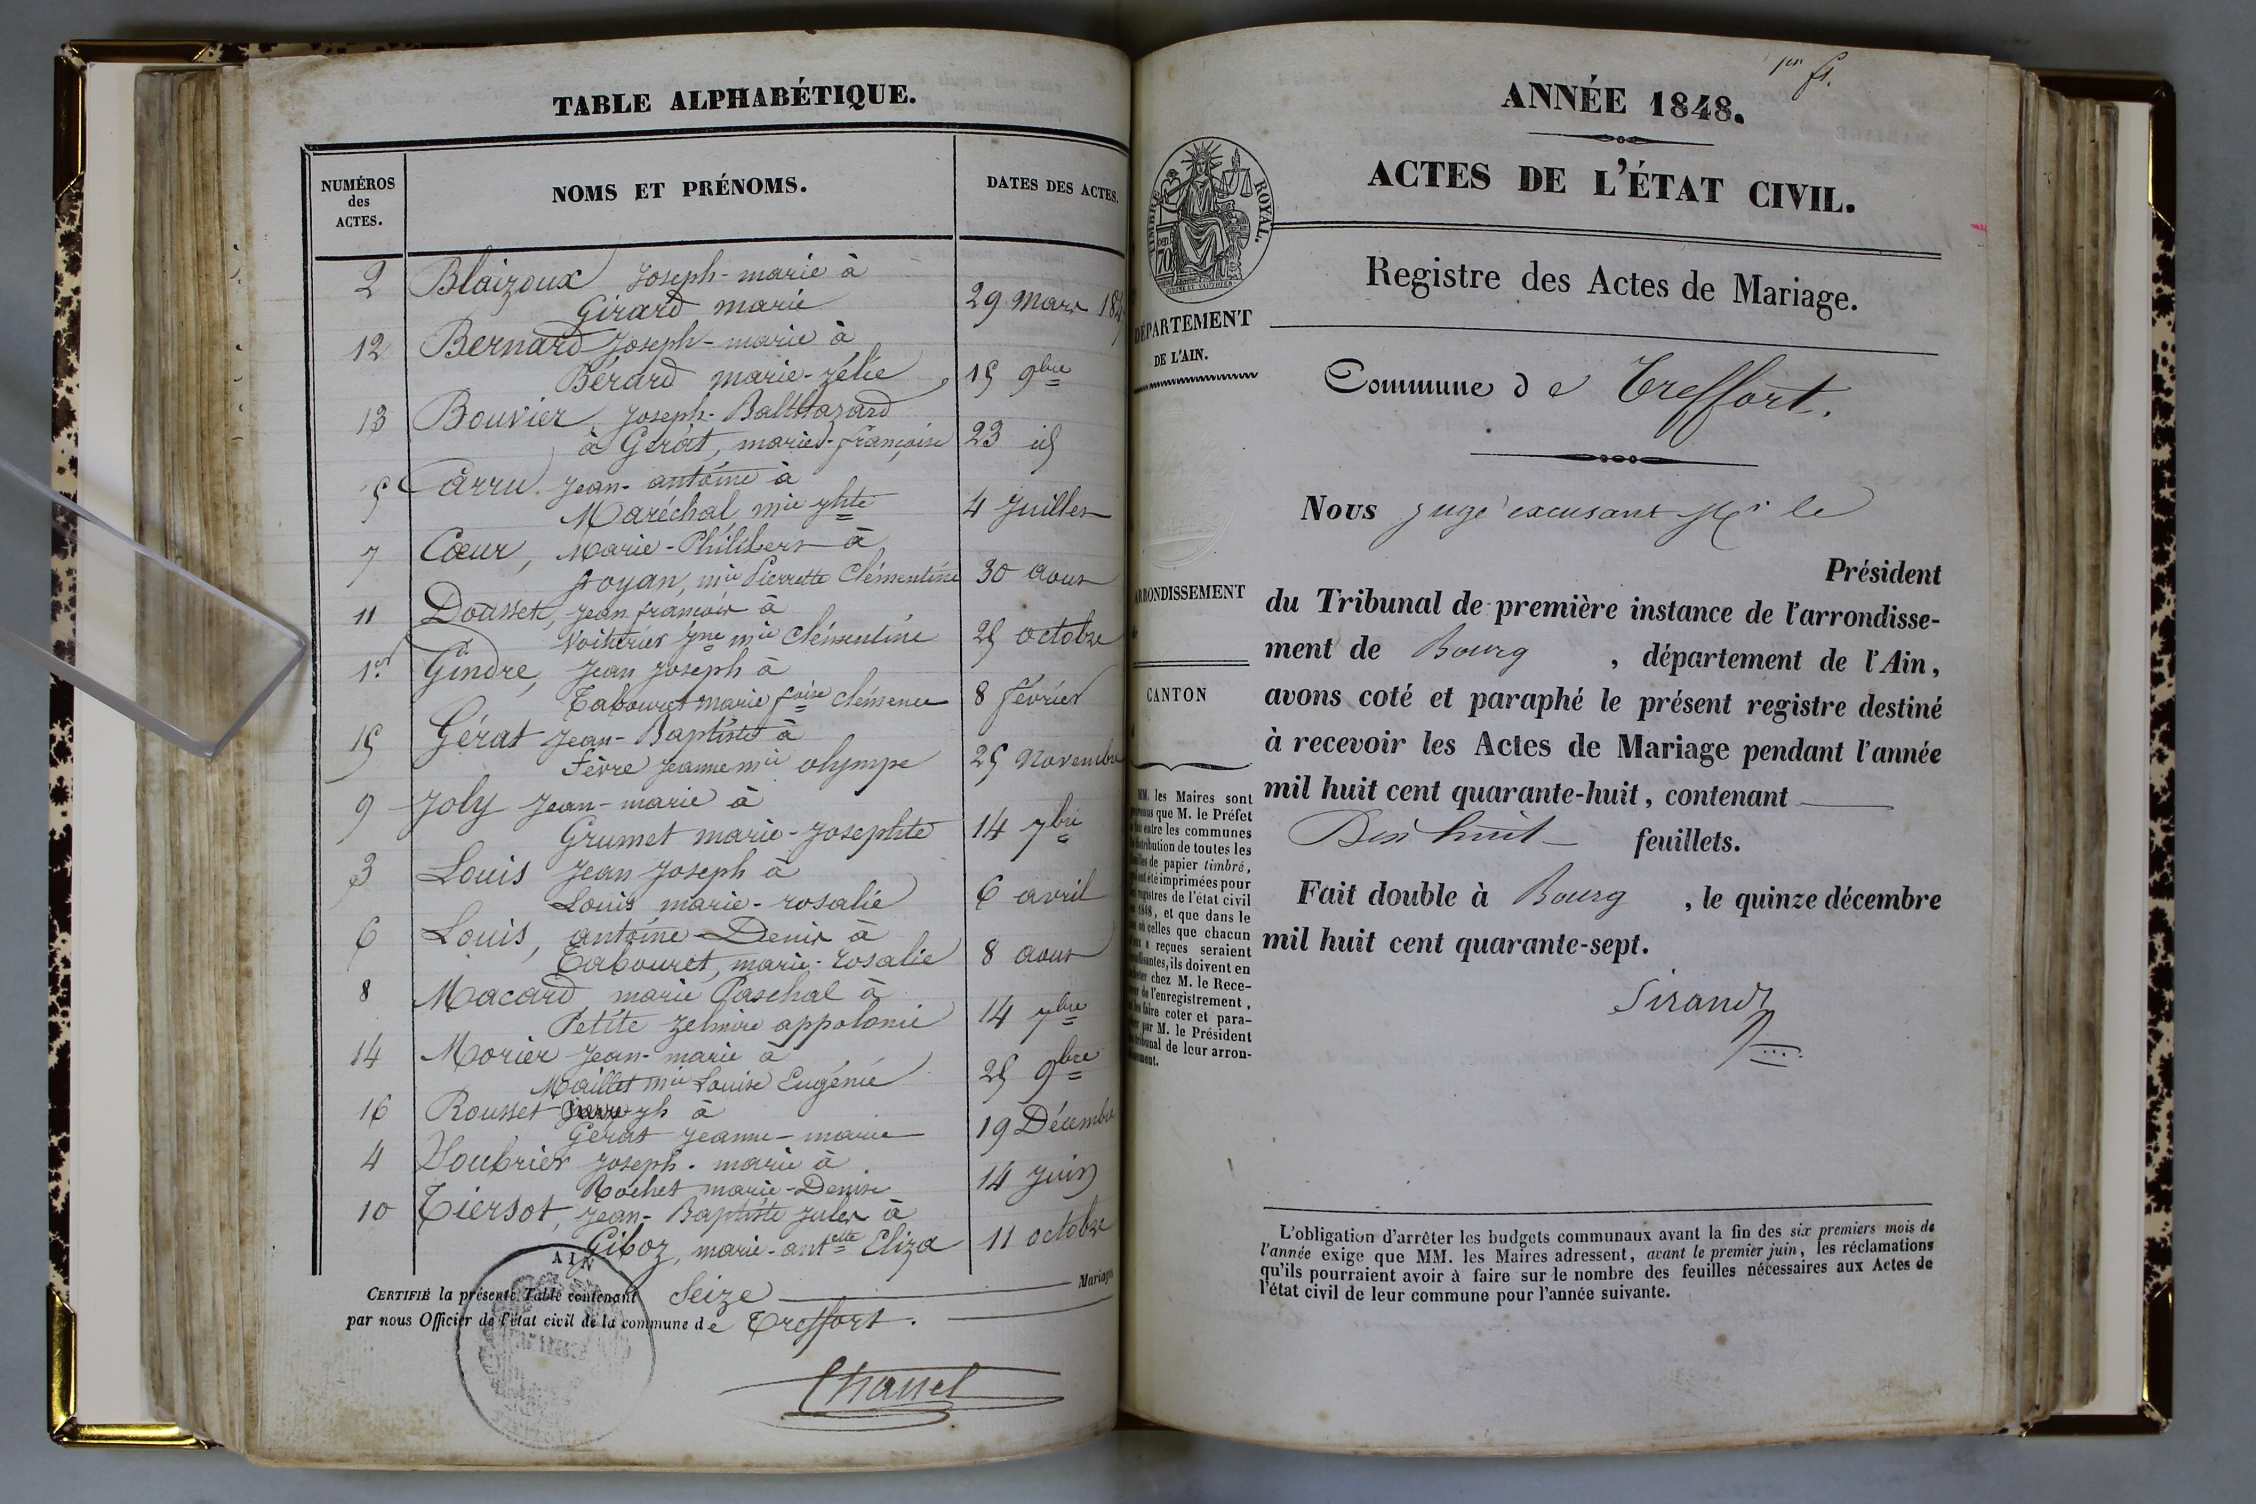 TABLE ALPHABÉTIQUE.
NUMÉROS
des
ACTES.
NOMS ET PRÉNOMS.
DATES DES ACTES.
2 Blaizoux Joseph-marie à
Girard marie 29 Mars 184
12 Bernard Joseph-marie à
Bérard marie-zélie 15 9bre
13 Bouvier Joseph-Balthazard
à Gérat, marie-françoise 23 id
5 Carru Jean-antoine à
Maréchal mie jhte 4 Juillet
7 Cœur, Marie-Philibert à
Goyan, mie Pierrette Clémentine 30 aout
11 Dousset, Jean françois à
Voiturier Jne mie Clémentine 25 octobre
1er Gindre, Jean Joseph à
Tabouret marie foise Clémence 8 février
15 Gérat Jean-Baptiste à
Fèvre Jeanne mie olympe 25 Novembre
9 Joly Jean-marie à
Grumet marie-Josephte 14 7bre
3 Louis Jean Joseph à
Louis marie-rosalie 6 avril
6 Louis, antoine-Denis à
Tabouret, marie-rosalie 8 aout
8 Macard marie Paschal à
Petite Zelmire appolonie 14 7bre
14 Morier Jean-marie à
Maillet mie Louise Eugénie 25 9bre
16 Rousset jh à
Gérat Jeanne-marie 19 Décembre
4 Soubrier Joseph-marie à
Rochet marie-Denise 14 Juin
10 Tiersot, Jean-Baptiste Jules à
Giboz, marie-antelle Eliza 11 octobre
AIN
CERTIFIÉ la présente Table contenant Seize Mariages
par nous Officier de l'état civil de la commune de Treffort.
Chanel
1er ft.
ANNÉE 1848.
ACTES DE L'ÉTAT CIVIL.
TIMBRE ROYAL.
70
Registre des Actes de Mariage.
DÉPARTEMENT
DE L'AIN.
Commune de Treffort.
Nous juge excusant Mr le
Président
du Tribunal de première instance de l'arrondisse-
ment de Bourg, département de l'Ain,
avons coté et paraphé le présent registre destiné
à recevoir les Actes de Mariage pendant l'année
mil huit cent quarante-huit, contenant
Dix huit feuillets.
Fait double à Bourg, le quinze décembre
mil huit cent quarante-sept.
Sirand
ARRONDISSEMENT
CANTON
MM. les Maires sont
que M. le Préfet
entre les communes
distribution de toutes les
de papier timbré,
été imprimées pour
registres de l'état civil
1848, et que dans le
où celles que chacun
reçues seraient
ils doivent en
chez M. le Rece-
de l'enregistrement,
faire coter et para-
par M. le Président
tribunal de leur arron-
L'obligation d'arrêter les budgets communaux avant la fin des six premiers mois de
l'année exige que MM. les Maires adressent, avant le premier juin, les réclamations
qu'ils pourraient avoir à faire sur le nombre des feuilles nécessaires aux Actes de
l'état civil de leur commune pour l'année suivante.